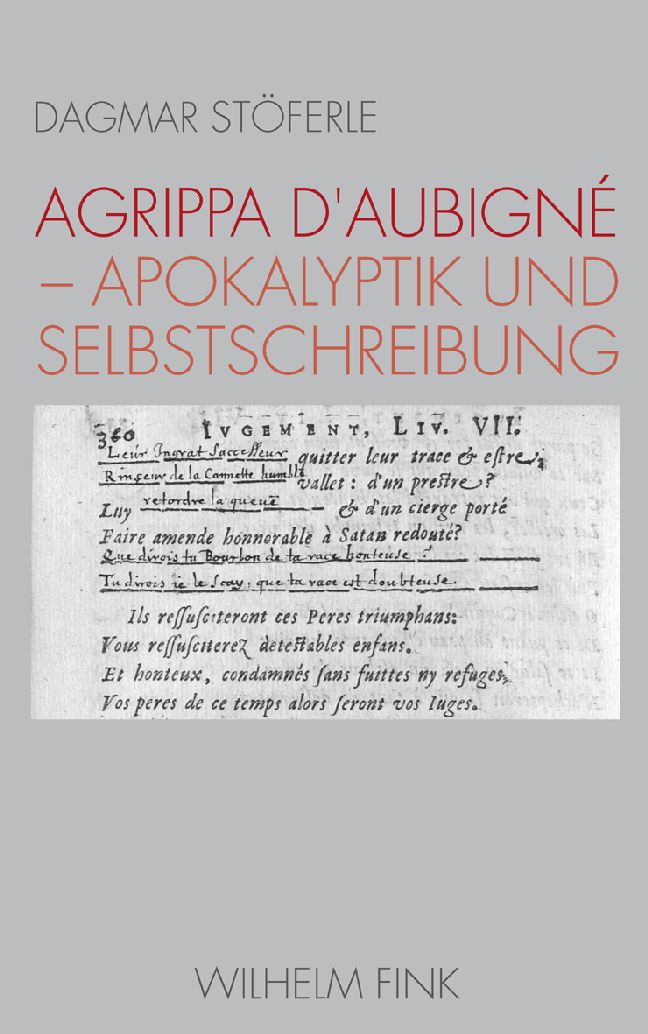 DAGMAR STÖFERLE
AGRIPPA D'AUBIGNÉ
– APOKALYPTIK UND
SELBSTSCHREIBUNG
360 IVGEMENT, LIV. VII.
Leur Ingrat Successeur quitter leur trace & estre,
Rinseur de la Cannette humble vallet : d'un prestre?
Luy retordre la queuë & d'un cierge porté
Faire amende honnorable à Satan redouté?
Que dirois tu Bourbon de ta race honteuse ?
Tu dirois ie le scay, que ta race est doubteuse.
Ils ressusciteront ces Peres triumphans:
Vous ressusciterez detestables enfans.
Et honteux, condamnés sans fuittes ny refuges,
Vos peres de ce temps alors seront vos Iuges.
WILHELM FINK